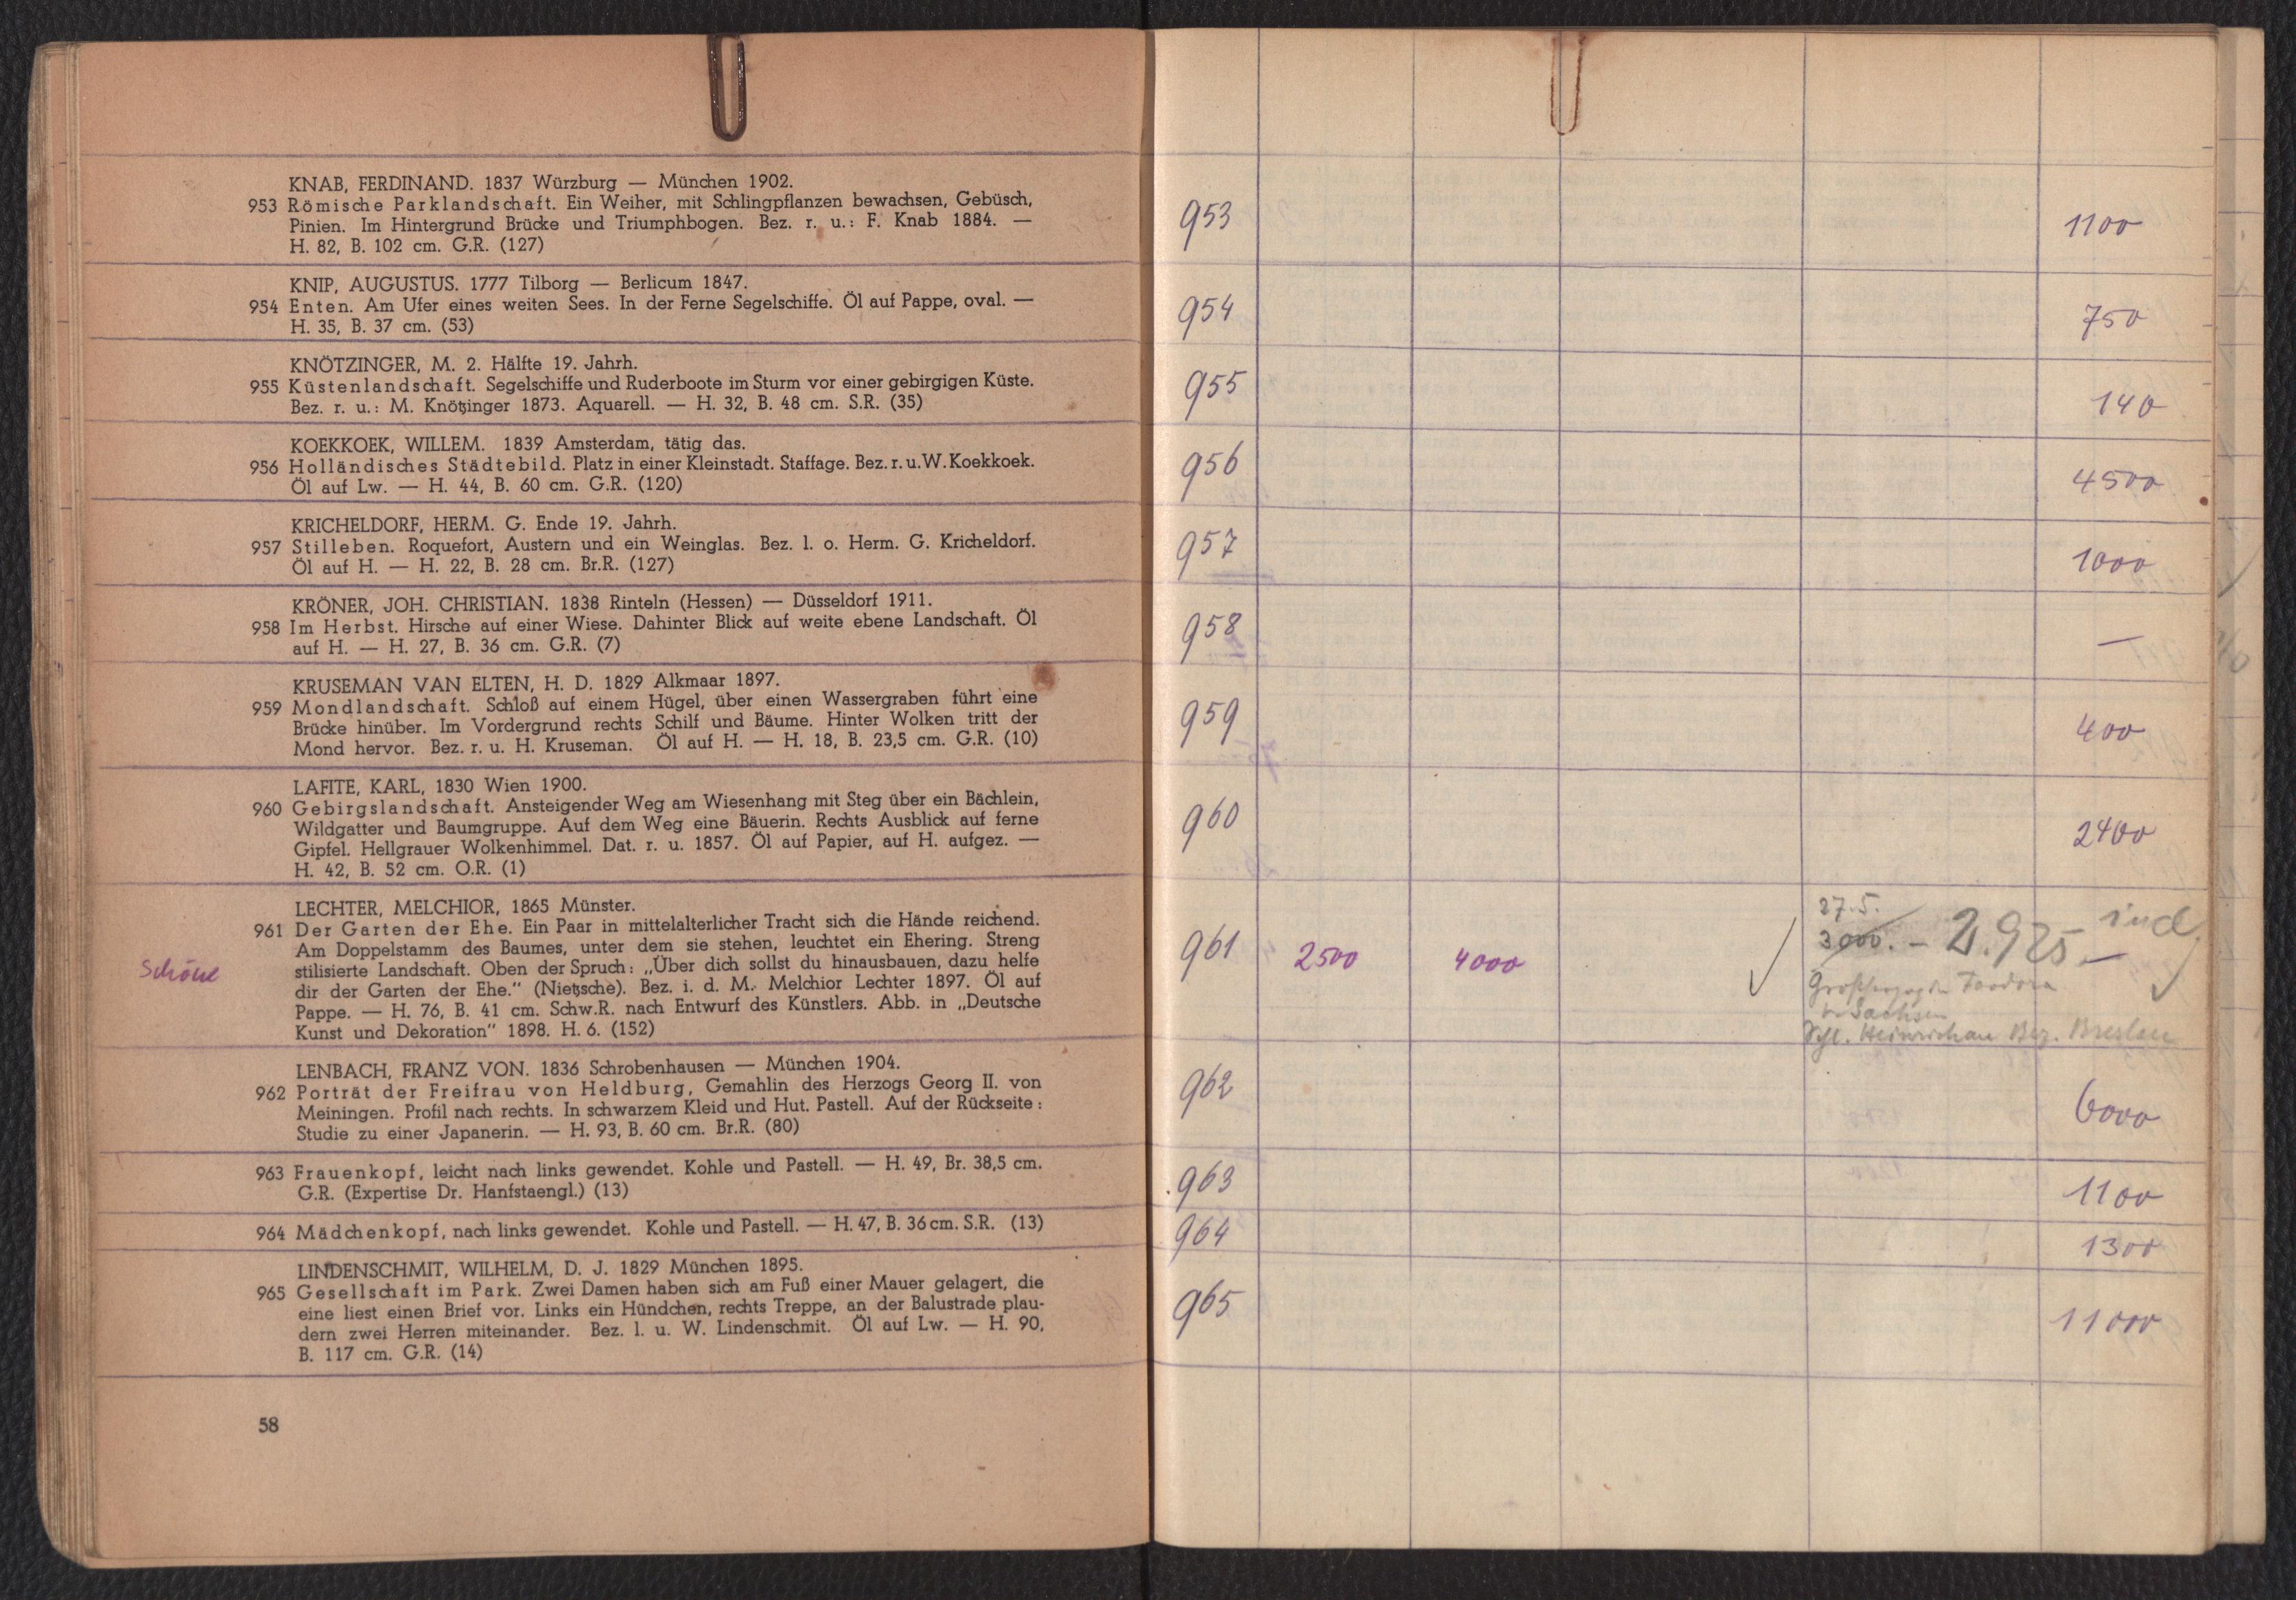 KNAB, FERDINAND. 1837 Würzburg — München 1902.
953 Römische Parklandschaft. Ein Weiher, mit Schlingpflanzen bewachsen, Gebüsch,
Pinien. Im Hintergrund Brücke und Triumphbogen. Bez. r. u.: F. Knab 1884. —
H. 82, B. 102 cm. G.R. (127)
KNIP, AUGUSTUS. 1777 Tilborg — Berlicum 1847.
954 Enten. Am Ufer eines weiten Sees. In der Ferne Segelschiffe. Öl auf Pappe, oval. —
H. 35, B. 37 cm. (53)
KNÖTZINGER, M. 2. Hälfte 19. Jahrh.
955 Küstenlandschaft. Segelschiffe und Ruderboote im Sturm vor einer gebirgigen Küste.
Bez. r. u.: M. Knötzinger 1873. Aquarell. — H. 32, B. 48 cm. S.R. (35)
KOEKKOEK, WILLEM. 1839 Amsterdam, tätig das.
956 Holländisches Städtebild. Platz in einer Kleinstadt. Staffage. Bez. r. u. W. Koekkoek.
Öl auf Lw. — H. 44, B. 60 cm. G.R. (120)
KRICHELDORF, HERM. G. Ende 19. Jahrh.
957 Stilleben. Roquefort, Austern und ein Weinglas. Bez. l. o. Herm. G. Kricheldorf.
Öl auf H. — H. 22, B. 28 cm. Br.R. (127)
KRÖNER, JOH. CHRISTIAN. 1838 Rinteln (Hessen) — Düsseldorf 1911.
958 Im Herbst. Hirsche auf einer Wiese. Dahinter Blick auf weite ebene Landschaft. Öl
auf H. — H. 27, B. 36 cm. G.R. (7)
KRUSEMAN VAN ELTEN, H. D. 1829 Alkmaar 1897.
959 Mondlandschaft. Schloß auf einem Hügel, über einen Wassergraben führt eine
Brücke hinüber. Im Vordergrund rechts Schilf und Bäume. Hinter Wolken tritt der
Mond hervor. Bez. r. u. H. Kruseman. Öl auf H. — H. 18, B. 23,5 cm. G.R. (10)
LAFITE, KARL, 1830 Wien 1900.
960 Gebirgslandschaft. Ansteigender Weg am Wiesenhang mit Steg über ein Bächlein,
Wildgatter und Baumgruppe. Auf dem Weg eine Bäuerin. Rechts Ausblick auf ferne
Gipfel. Hellgrauer Wolkenhimmel. Dat. r. u. 1857. Öl auf Papier, auf H. aufgez. —
H. 42, B. 52 cm. O.R. (1)
LECHTER, MELCHIOR, 1865 Münster.
961 Der Garten der Ehe. Ein Paar in mittelalterlicher Tracht sich die Hände reichend.
Am Doppelstamm des Baumes, unter dem sie stehen, leuchtet ein Ehering. Streng
Schöne
stilisierte Landschaft. Oben der Spruch: „Über dich sollst du hinausbauen, dazu helfe
dir der Garten der Ehe.“ (Nietzsche). Bez. i. d. M. Melchior Lechter 1897. Öl auf
Pappe. — H. 76, B. 41 cm. Schw.R. nach Entwurf des Künstlers. Abb. in „Deutsche
Kunst und Dekoration“ 1898. H. 6. (152)
LENBACH, FRANZ VON. 1836 Schrobenhausen — München 1904.
962 Porträt der Freifrau von Heldburg, Gemahlin des Herzogs Georg II. von
Meiningen. Profil nach rechts. In schwarzem Kleid und Hut. Pastell. Auf der Rückseite:
Studie zu einer Japanerin. — H. 93, B. 60 cm. Br.R. (80)
963 Frauenkopf, leicht nach links gewendet. Kohle und Pastell. — H. 49, Br. 38,5 cm.
G.R. (Expertise Dr. Hanfstaengl.) (13)
964 Mädchenkopf, nach links gewendet. Kohle und Pastell. — H. 47, B. 36 cm. S.R. (13)
LINDENSCHMIT, WILHELM, D. J. 1829 München 1895.
965 Gesellschaft im Park. Zwei Damen haben sich am Fuß einer Mauer gelagert, die
eine liest einen Brief vor. Links ein Hündchen, rechts Treppe, an der Balustrade plau-
dern zwei Herren miteinander. Bez. l. u. W. Lindenschmit. Öl auf Lw. — H. 90,
B. 117 cm. G.R. (14)
58
953 1100
954 750
955 140
956 4500
957 1000
958 —
959 400
960 2400
27.5.
961 2500 4000 ✓ 3000. – 2.925.– incl ✓
Großherzogin Feodora
v. Sachsen
Schl. Heinrichau Bez. Breslau
962 6000
963 1100
964 1300
965 11000